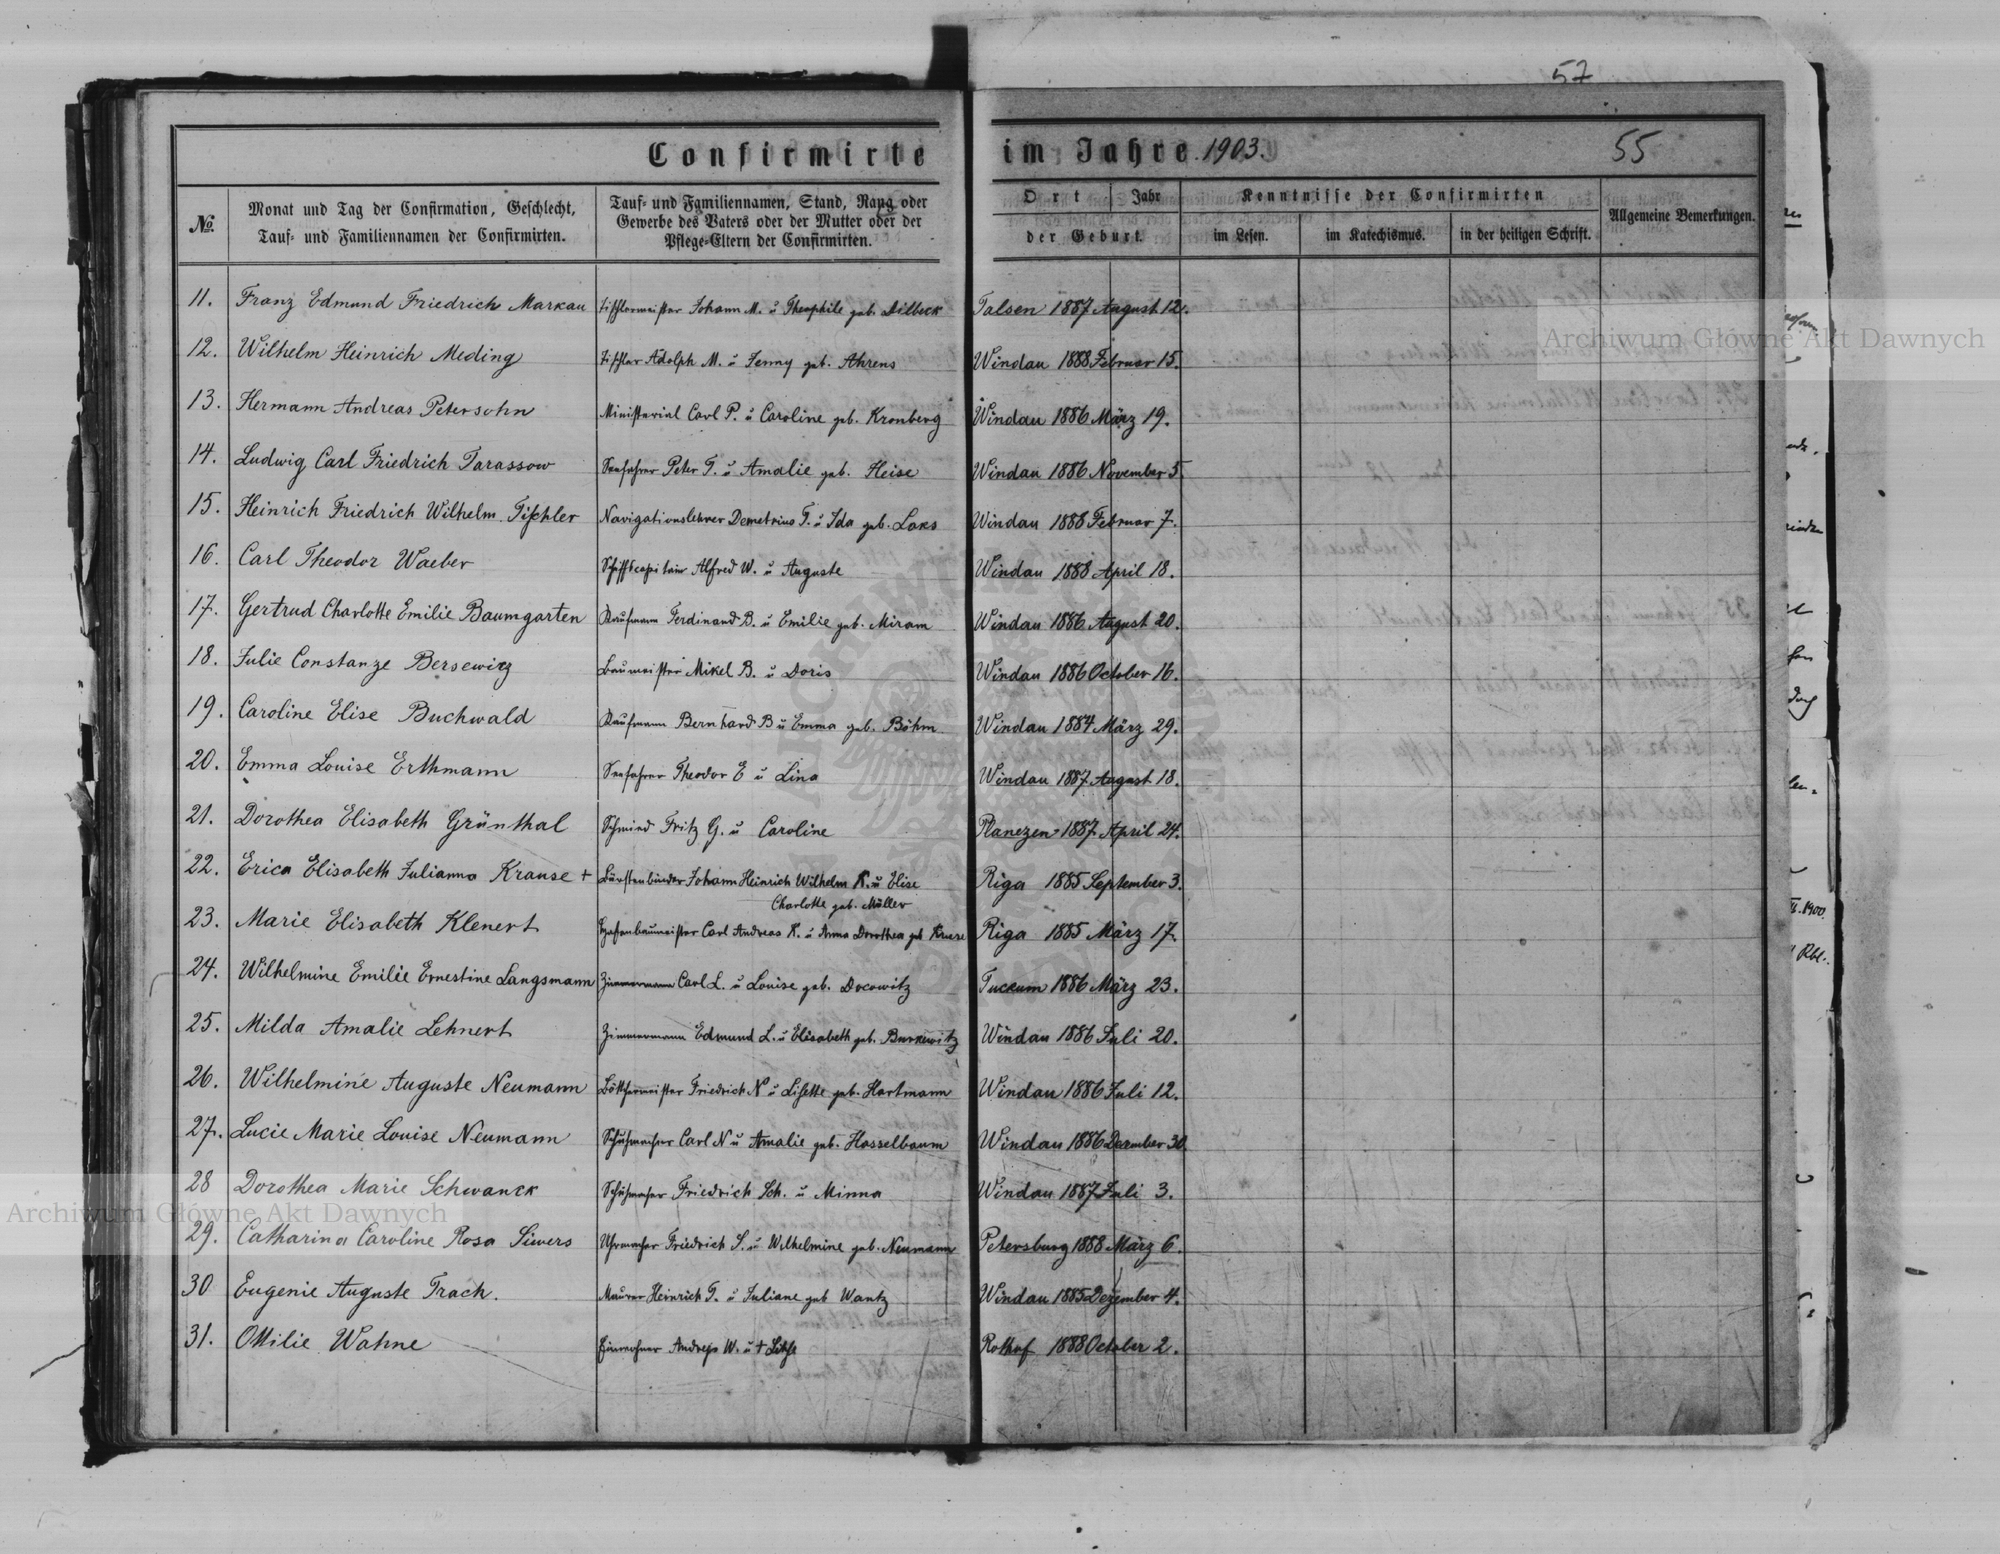 57
Confirmirte im Jahre 1903. 55
No. Monat und Tag der Confirmation, Geschlecht, Tauf- und Familiennamen der Confirmirten. Tauf- und Familiennamen, Stand, Rang oder Gewerbe des Vaters oder der Mutter oder der Pflege-Eltern der Confirmirten. Ort Jahr der Geburt. Kenntnisse der Confirmirten im Lesen. im Katechismus. in der heiligen Schrift. Allgemeine Bemerkungen.
11. Franz Edmund Friedrich Markau Tischlermeister Johann M. u Theophile geb. Dilbeck Talsen 1887 August 12.
12. Wilhelm Heinrich Meding Tischler Adolph M. u Jenny geb. Ahrens Windau 1888 Februar 15.
13. Hermann Andreas Petersohn Ministerial Carl P. u Caroline geb. Kronberg Windau 1886 März 19.
14. Ludwig Carl Friedrich Tarassow Seefahrer Peter T. u Amalie geb. Heise Windau 1886 November 5
15. Heinrich Friedrich Wilhelm Tischler Navigationslehrer Demetrius T. u Ida geb. Laks Windau 1888 Februar 7.
16. Carl Theodor Waeber Schiffscapitain Alfred W. u Auguste Windau 1888 April 18.
17. Gertrud Charlotte Emilie Baumgarten Kaufmann Ferdinand B. u Emilie geb. Miram Windau 1886 August 20.
18. Julie Constanze Bersewitz Baumeister Mikel B. u Doris Windau 1886 October 16.
19. Caroline Elise Buchwald Kaufmann Bernhard B u Emma geb. Böhm Windau 1887 März 29.
20. Emma Louise Erthmann Seefahrer Theodor E u Lina Windau 1887 August 18.
21. Dorothea Elisabeth Grünthal Schmied Fritz G. u Caroline Planezen 1887 April 24.
22. Erica Elisabeth Julianna Krause + Bürstenbinder Johann Heinrich Wilhelm K. u Elise Riga 1885 September 3.
Charlotte geb. Müller
23. Marie Elisabeth Klenert Hafenbaumeister Carl Andreas K. u Anna Dorothea geb Kruse Riga 1885 März 17.
24. Wilhelmine Emilie Ernestine Langsmann Zimmermann Carl L. u Louise geb. Docowitz Tuckum 1886 März 23.
25. Milda Amalie Lehnert Zimmermann Edmund L. u Elisabeth geb. Burkewitz Windau 1886 Juli 20.
26. Wilhelmine Auguste Neumann Böttchermeister Friedrich N u Lisette geb. Hartmann Windau 1886 Juli 12.
27. Lucie Marie Louise Neumann Schuhmacher Carl N u Amalie geb. Hasselbaum Windau 1886 Dezember 30
28 Dorothea Marie Schwanck Schuhmacher Friedrich Sch. u Minna Windau 1887 Juli 3.
29. Catharina Caroline Rosa Siwers Uhrmacher Friedrich S. u Wilhelmine geb. Neumann Petersburg 1888 März 6.
30 Eugenie Auguste Trach. Maurer Heinrich T. u Juliane geb Wantz Windau 1885 Dezember 4.
31. Ottilie Wahne Einwohner Andrejs W. u + Rothof 1888 October 2.
Archiwum Główne Akt Dawnych
Archiwum Główne Akt Dawnych